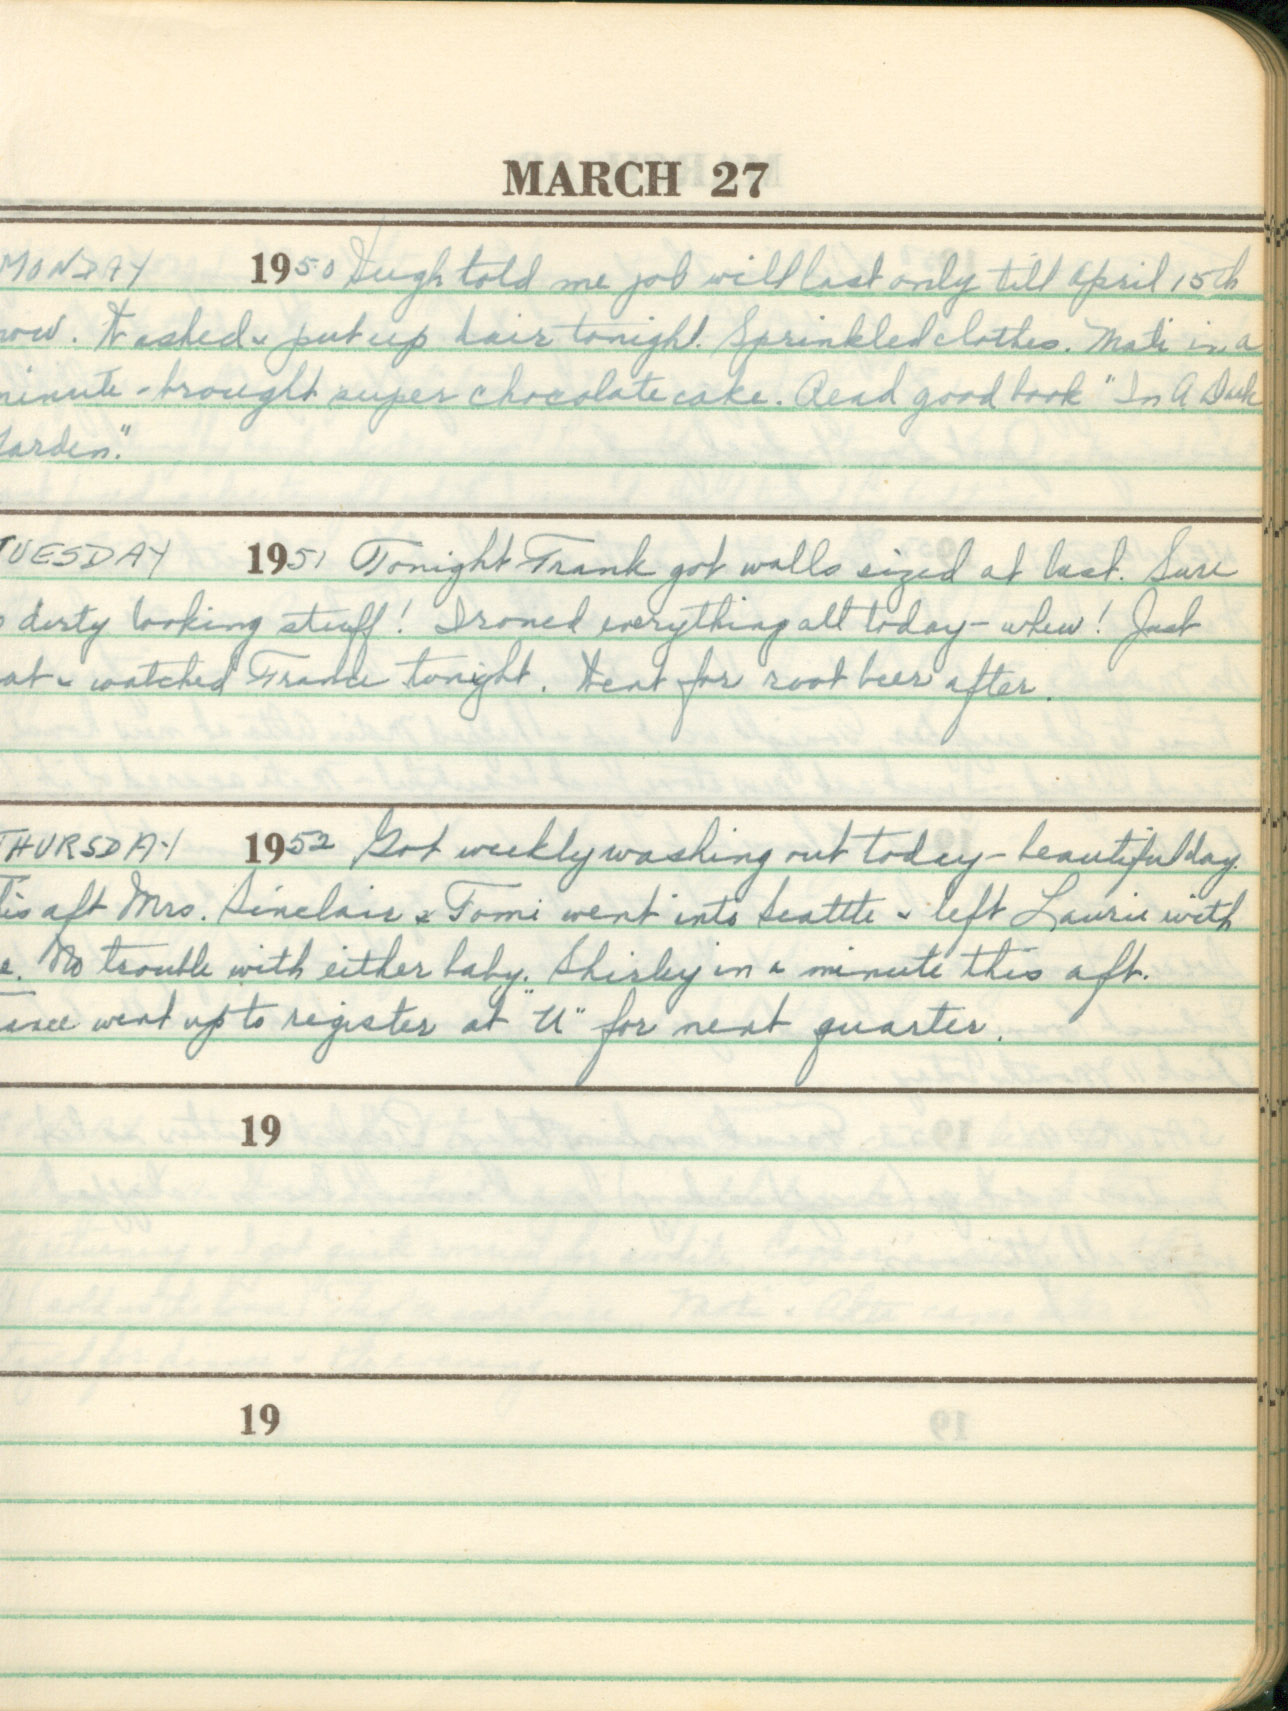 MARCH 27
MONDAY 1950 Hugh told me job will last only till April 15th
now. Washed & put up hair tonight. Sprinkled clothes. Mati in a
minute - brought super chocolate cake. Read good book "In A Dark
Garden."
TUESDAY 1951 Tonight Frank got walls sized at last. Sure
is dirty looking stuff! Ironed everything all today - whew! Just
sat & watched France tonight. Went for root beer after.
THURSDAY 1952 Got weekly washing out today - beautiful day.
This aft Mrs. Sinclair & Tomi went into Seattle & left Laurie with
me. No trouble with either baby. Shirley in a minute this aft.
went up to register at "U" for next quarter.
19
19